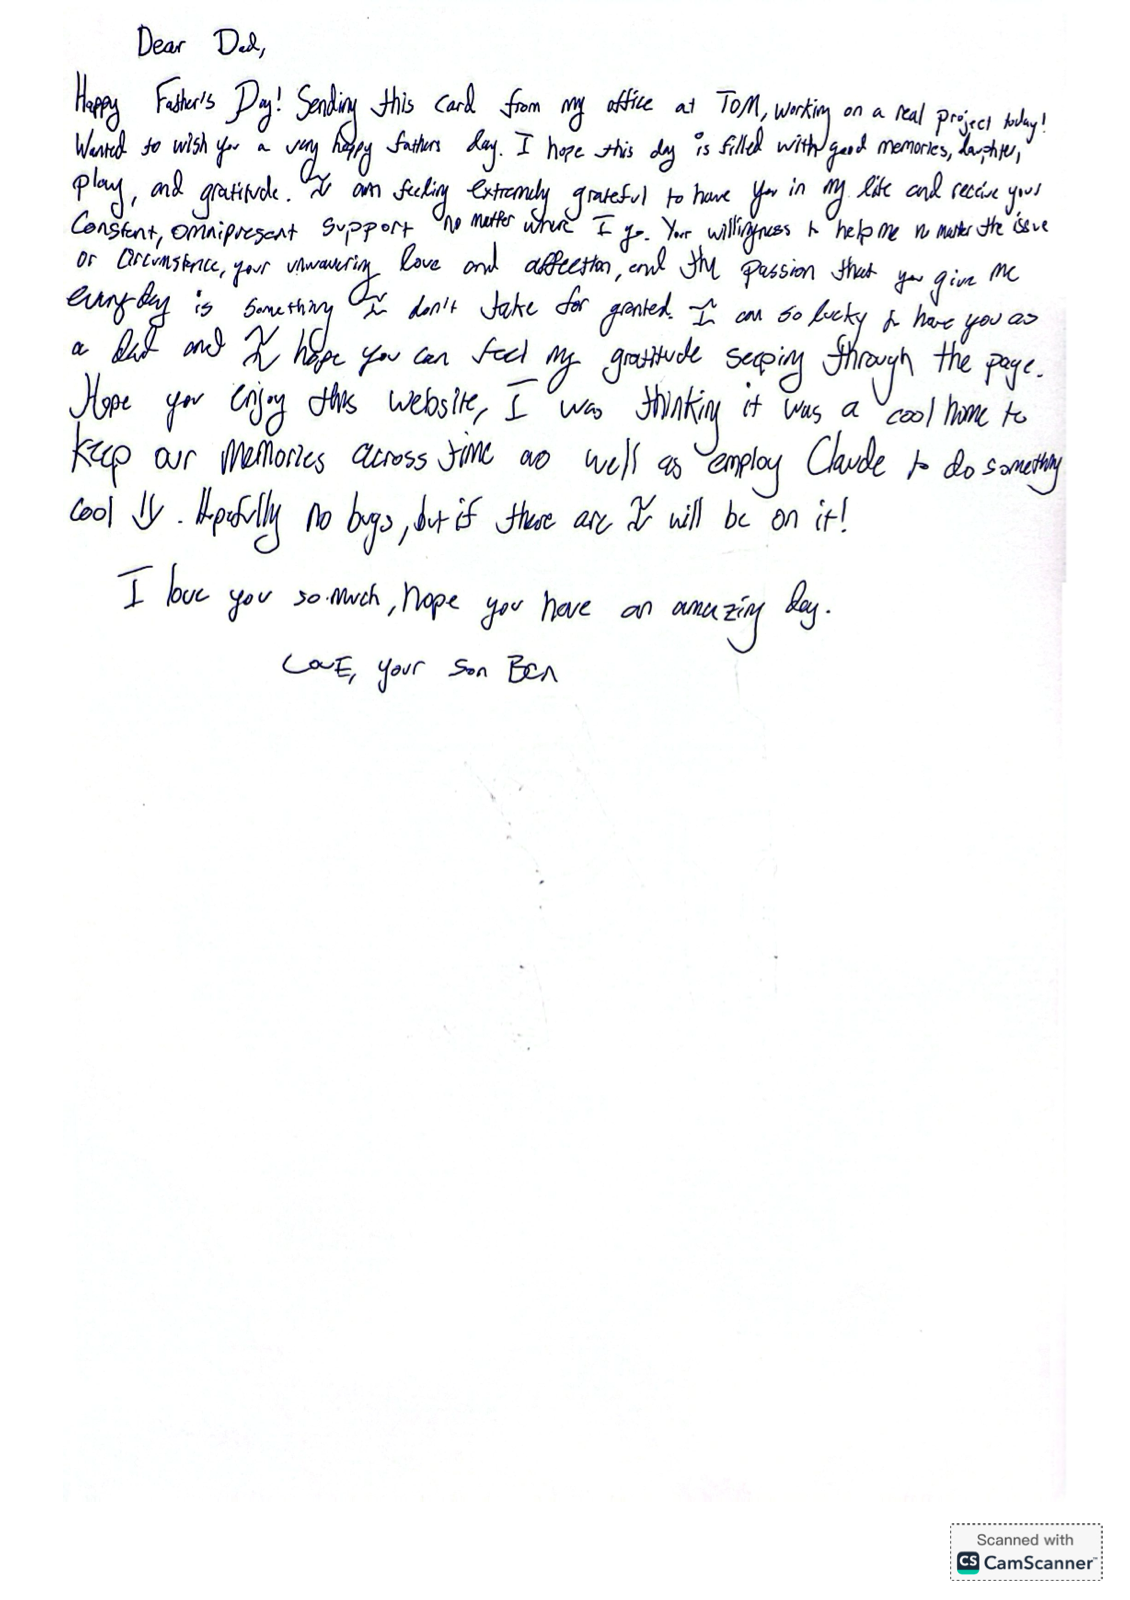 Dear Dad,
Happy Father's Day! Sending this card from my office at TOM, working on a real project today!
Wanted to wish you a very happy fathers day. I hope this day is filled with good memories, laughter,
play, and gratitude. I am feeling extremely grateful to have you in my life and receive your
constant, omnipresent support no matter where I go. Your willingness to help me no matter the issue
or circumstance, your unwavering love and affection, and the passion that you give me
everyday is something I don't take for granted. I am so lucky to have you as
a Dad and I hope you can feel my gratitude seeping through the page.
Hope you enjoy this website, I was thinking it was a cool home to
keep our memories across time as well as employ Claude to do something
cool. Hopefully no bugs, but if there are I will be on it!
I love you so much, hope you have an amazing day.
LovE, your son Ben
Scanned with
CS CamScanner